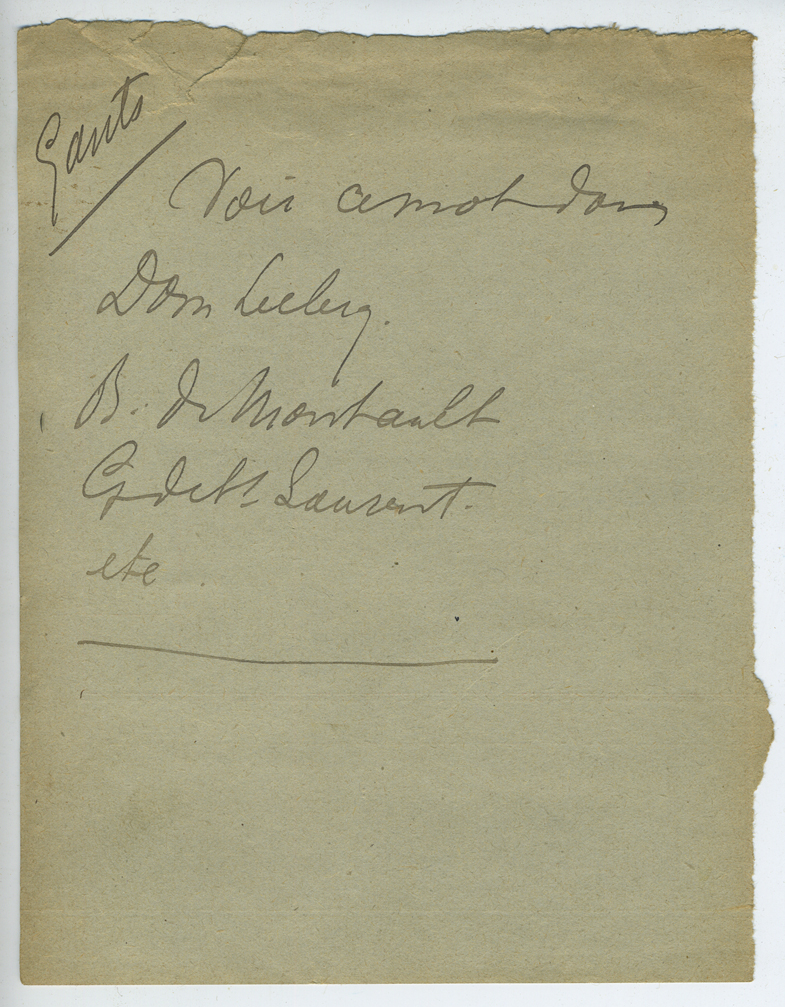 Gants
Voir ce mot dans
Dom Leclerq.
B. de Montault
G de St Laurent.
etc